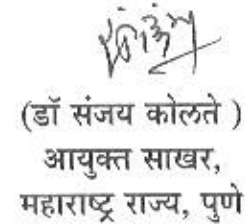 (डॉ संजय कोलते )
आयुक्त साखर,
महाराष्ट्र राज्य, पुणे